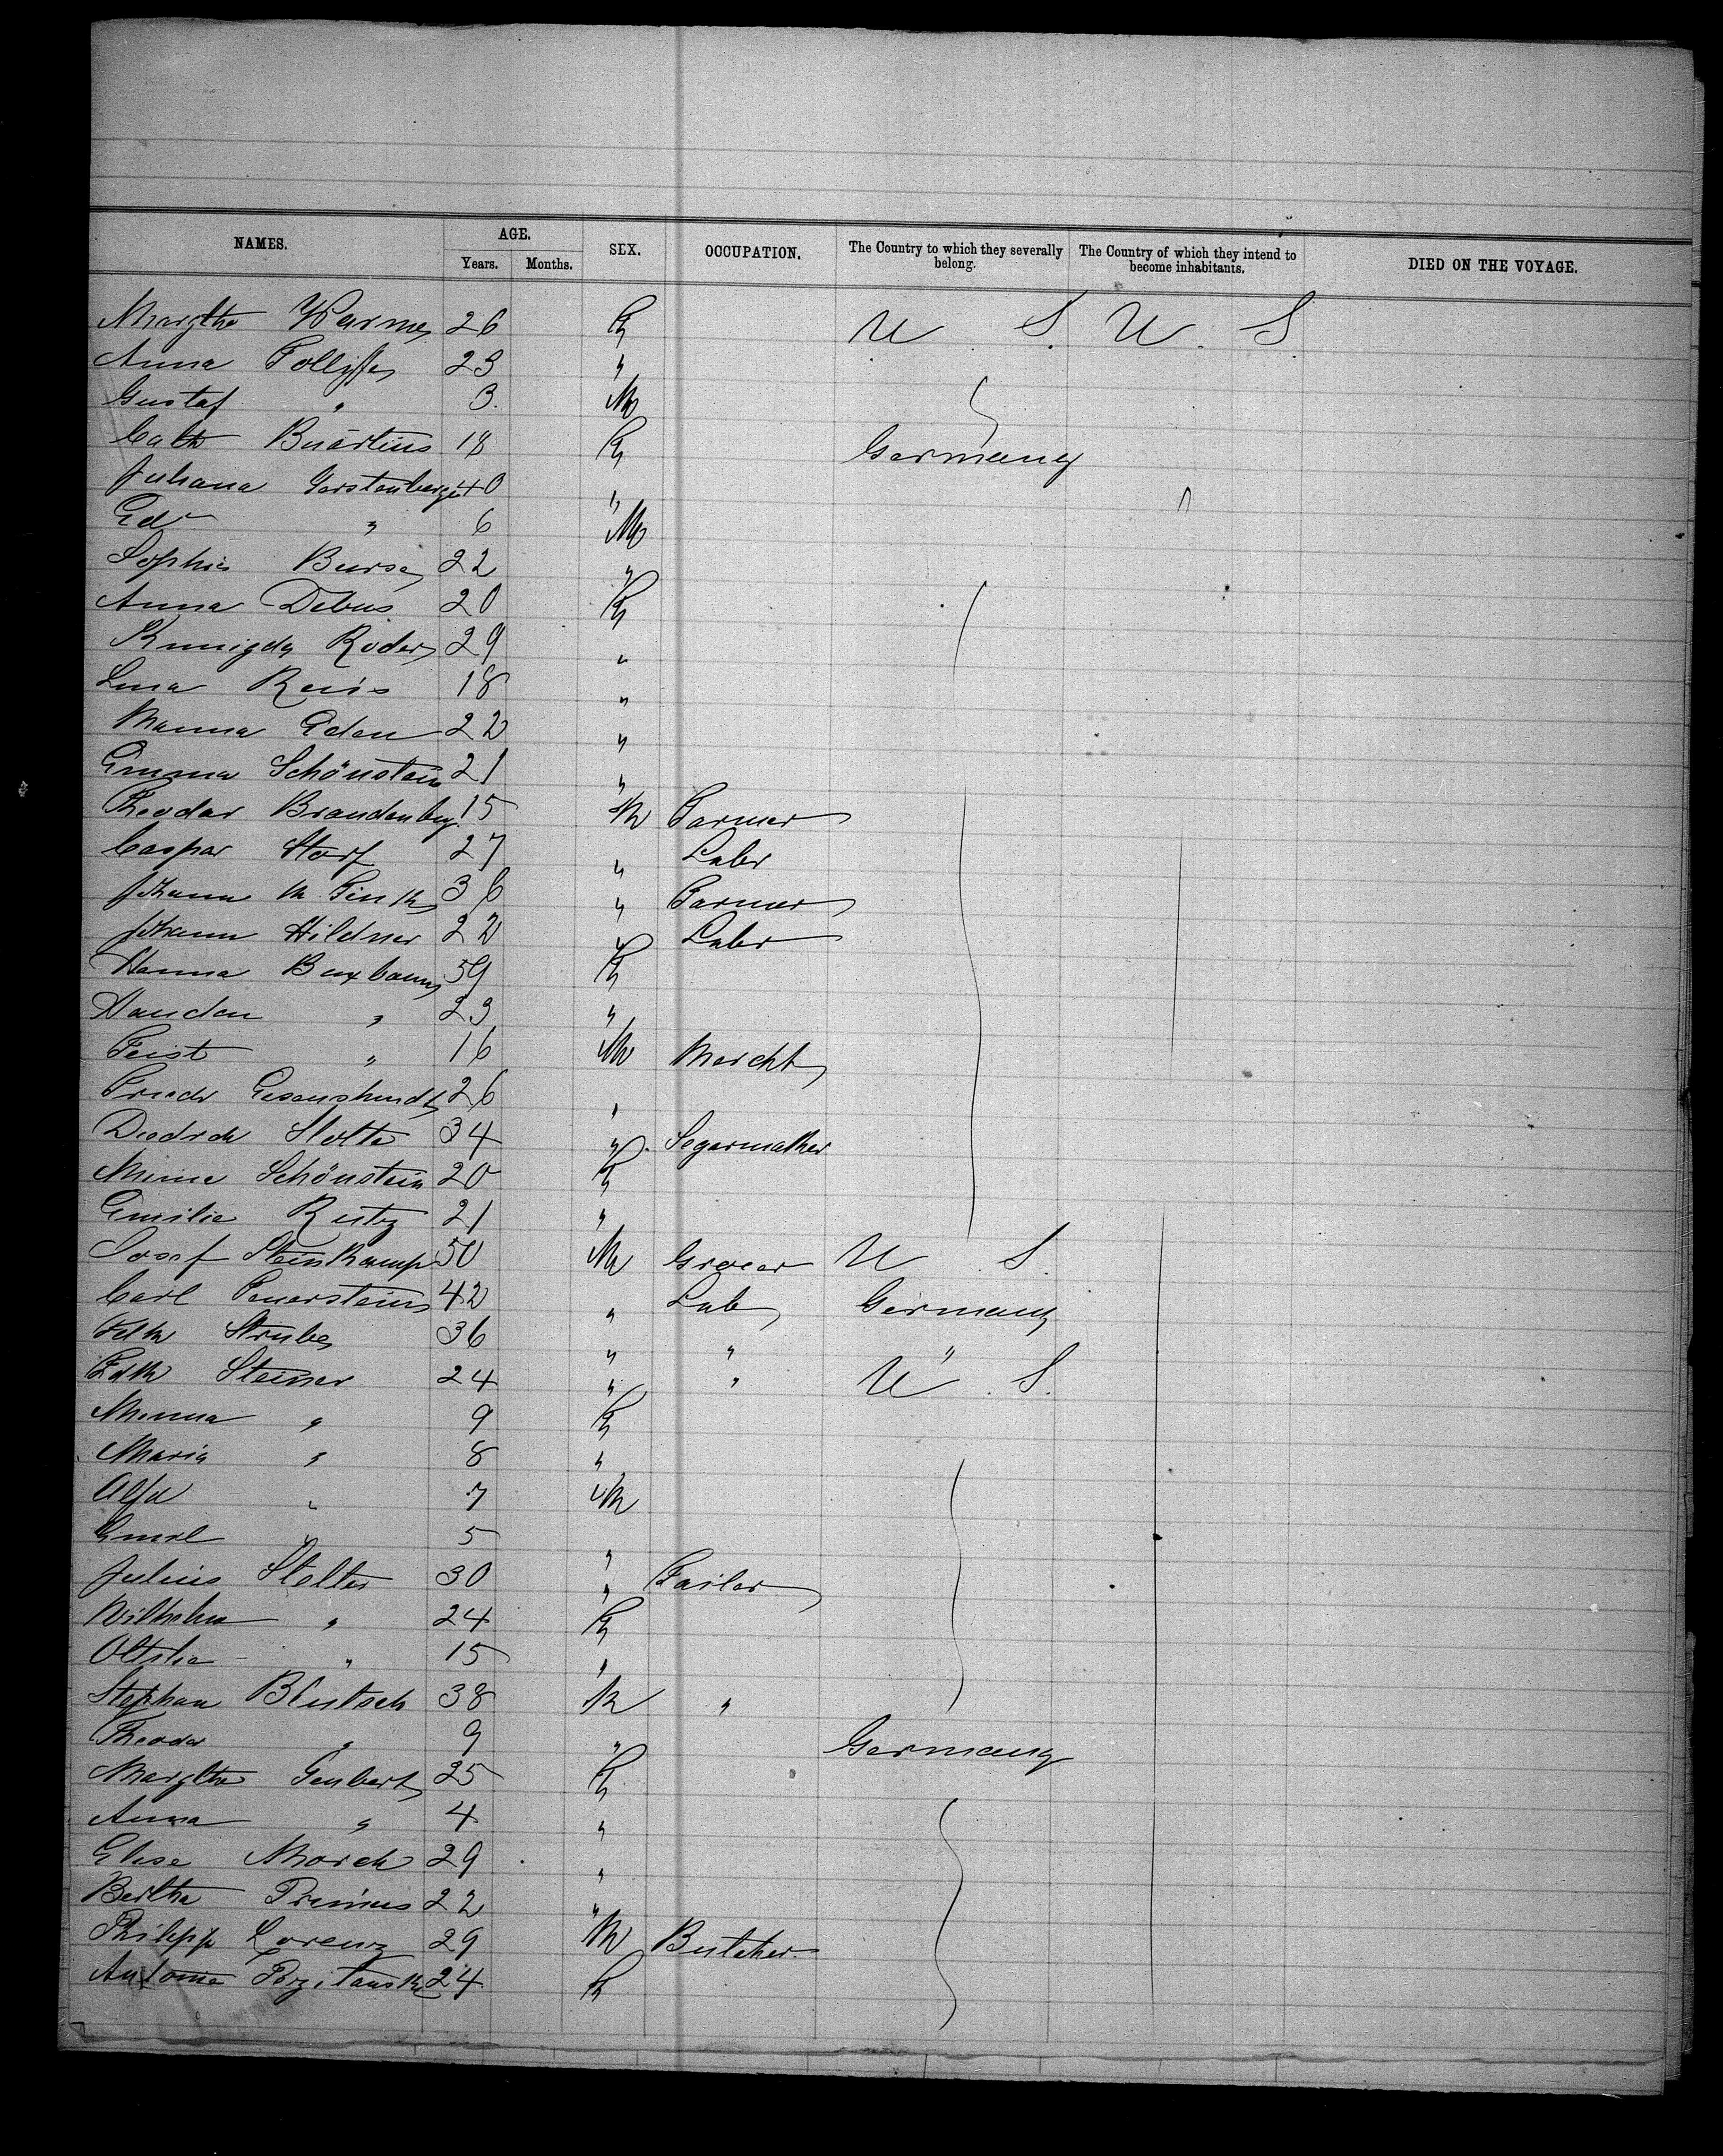 NAMES. AGE. SEX. OCCUPATION. The Country to which they severally belong. The Country of which they intend to become inhabitants. DIED ON THE VOYAGE.
Years. Months.
Margtha 26 F U. S. U. S.
Anna 23 "
Gustaf " 3. M
Cath 18 F Germany
Juliana Gerstenberger 40 "
Ed " 6 M
Sophie 22 "
Anna Debus 20 F
Kunigda Roder 29 "
Lina Reris 18 "
Manna Eden 22 "
Emma Schönstein 21 "
Theodor Brandenbg. 15 M Farmer
Caspar Storf 27 " Labr
Johann M. Fink 36 " Farmer
Johann Hildner 22 " Labr
Hanna Buxbaum 59 F
Handen " 23 "
Feist " 16 M Mercht
Friedr 26 "
Diedrch Stolte 34 " Segarmaker
Minne Schönstein 20 F
Emilie Rutz 21 "
Josef Steinkamp 50 M Grocer U. S.
Carl Feuerstein 42 " Lab Germany
Fdk Strube 36 " " "
Fdk Steiner 24 " " U. S.
Minna " 9 F
Maria " 8 "
Alfd " 7 M
Emil " 5 "
Julius Stelter 30 " Tailor
Wilhelm " 24 F
Ottilie " 15 "
Stephan Blutsch 38 M "
Theodor " 9 " Germany
Margtha Genbert 25 F
Anna " 4 "
Elise March 29 "
Bertha Primus 22 "
Philipp Lorenz 29 M Butcher
Antonie 24 F